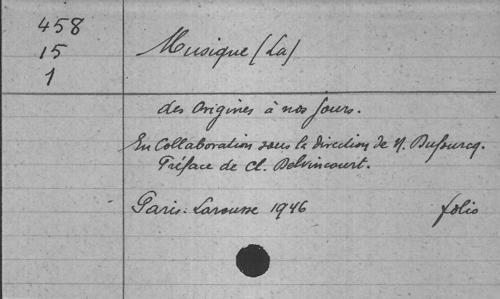 458
15
1
Musique (La)
des Origines à nos jours.
En Collaboration sous la direction de N. Dufourcq.
Préface de Cl. Delvincourt.
Paris. Larousse 1946 folio